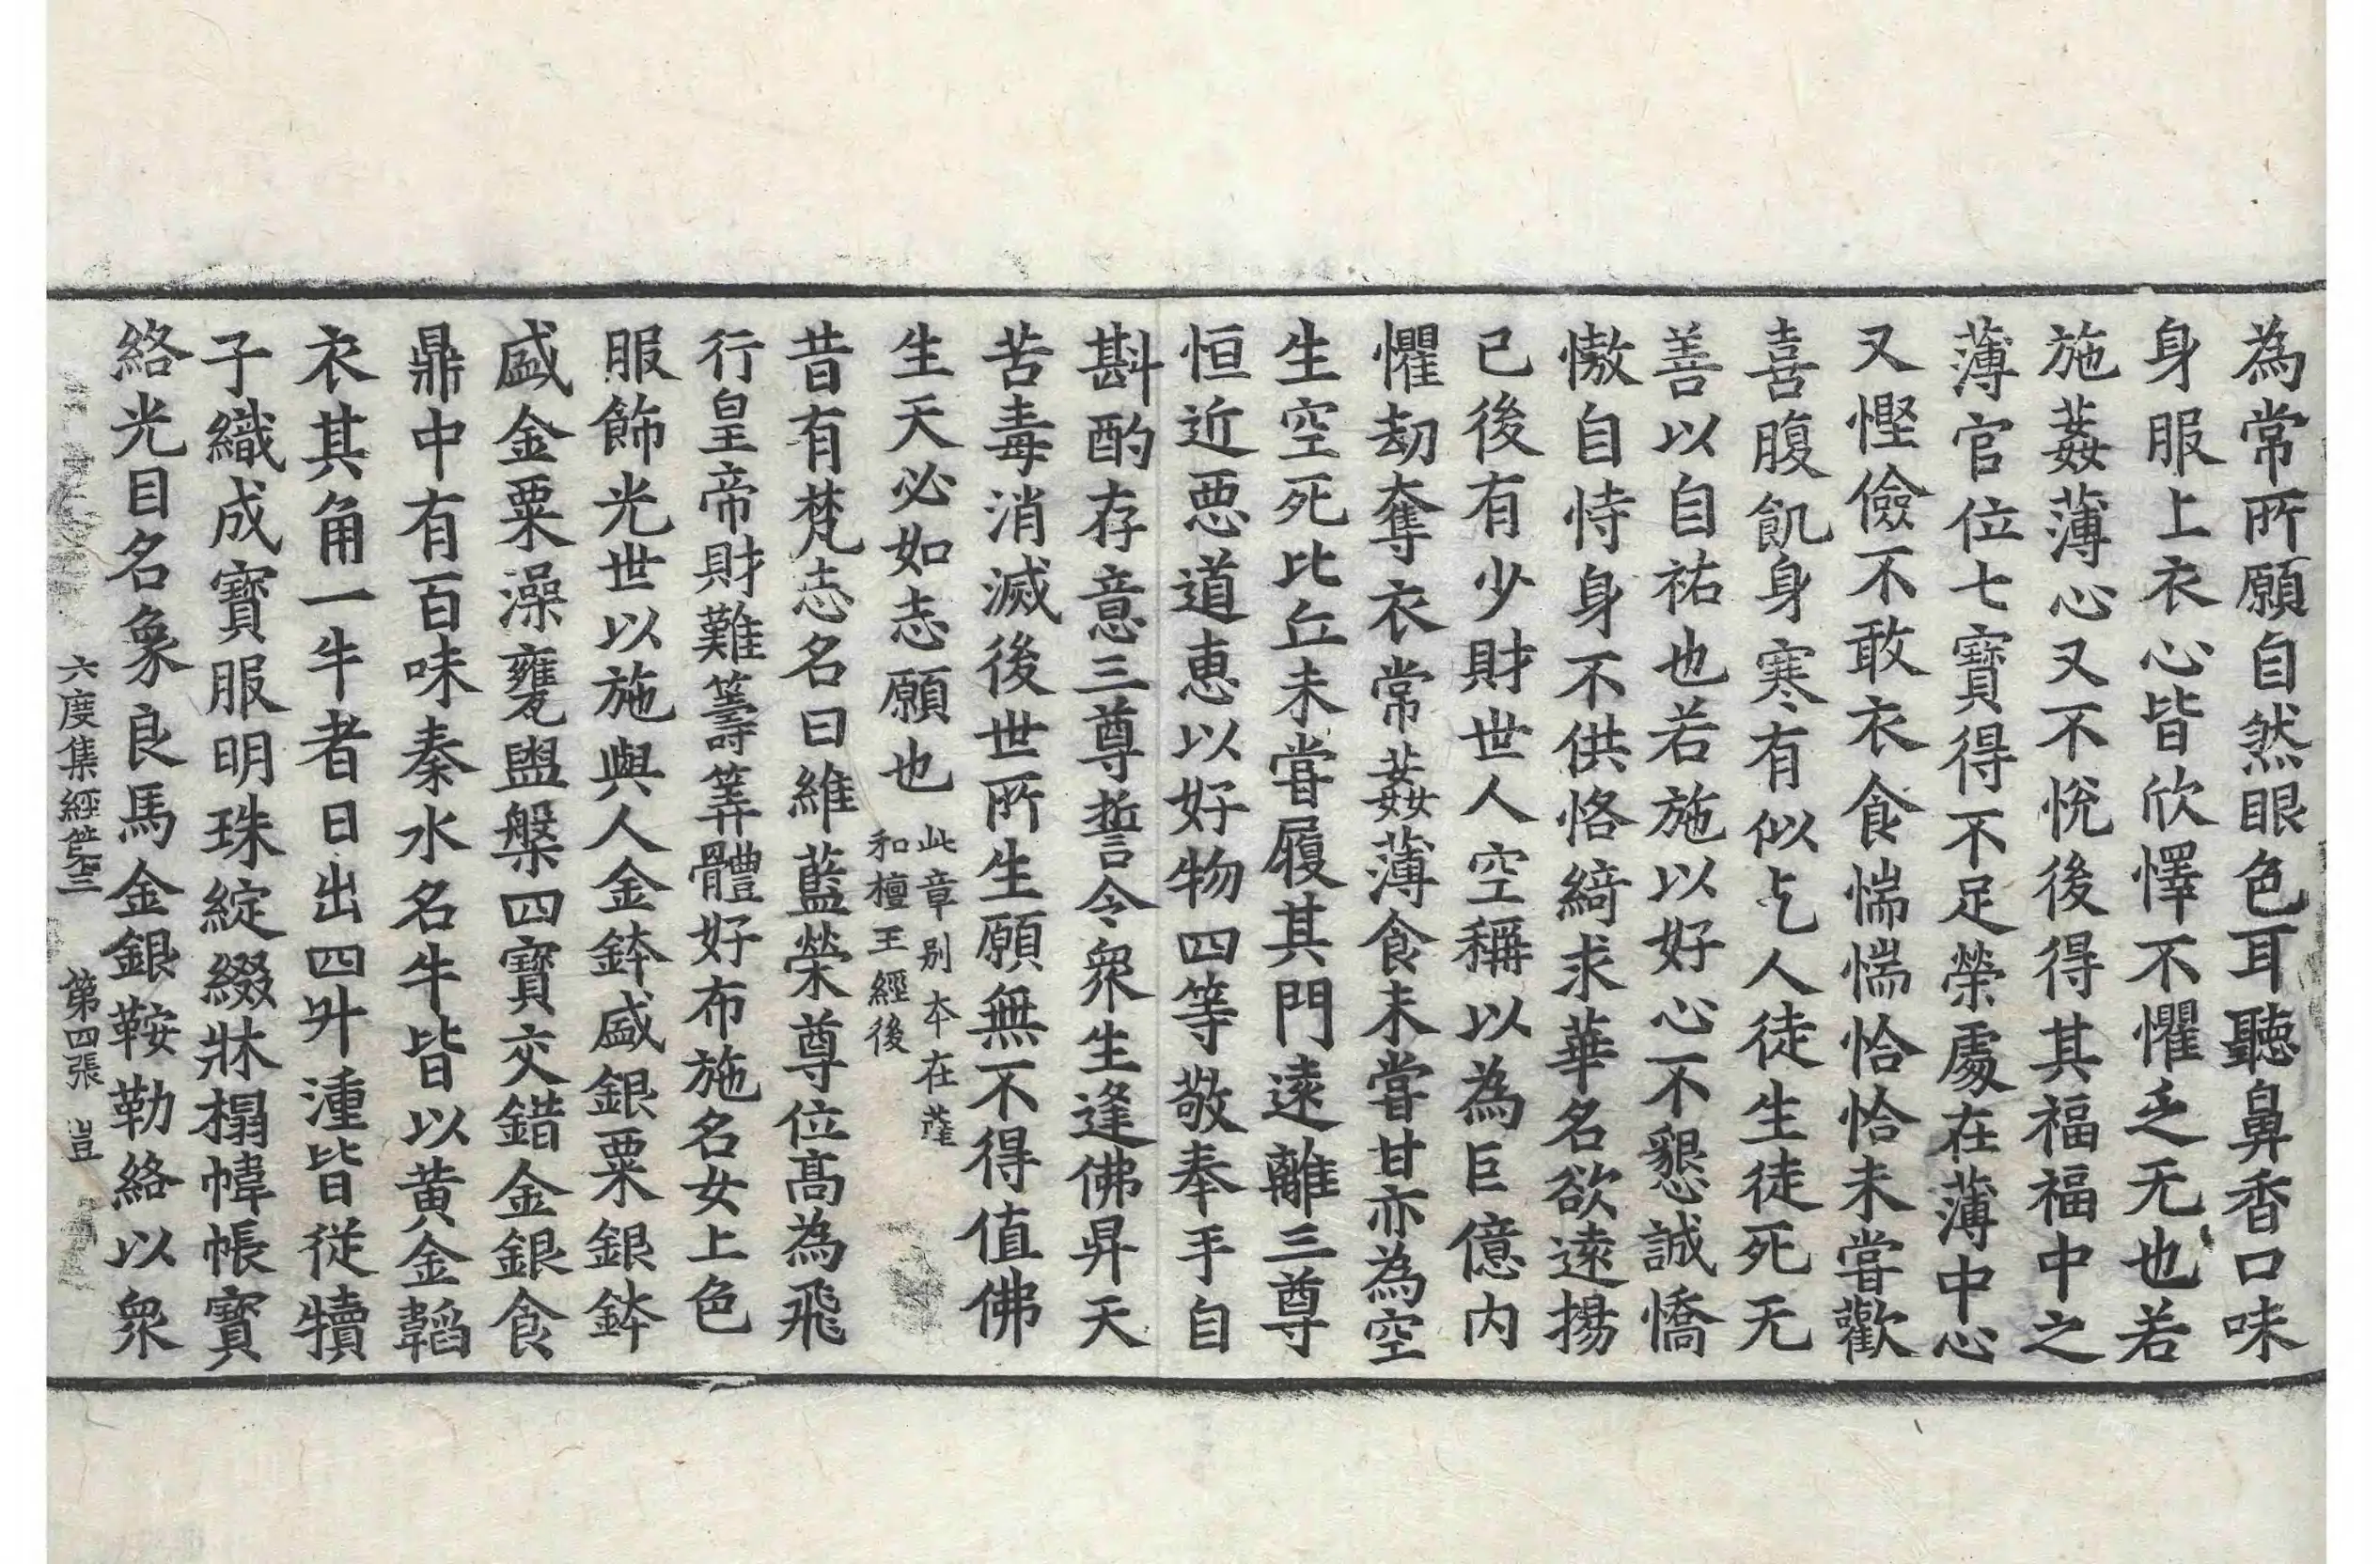 為常所願自然眼色耳聽鼻香口味
身服上衣心皆欣懌不懼乏无也若
施姦薄心又不悅後得其福福中之
薄官位七寶得不足榮處在薄中心
又慳儉不敢衣食惴惴恰恰未嘗歡
喜腹飢身寒有似乞人徒生徒死无
善以自祐也若施以好心不懇誠憍
慠自恃身不供恪綺求華名欲遠揚
已後有少財世人空稱以為巨億内
懼劫奪衣常姦薄食未嘗甘亦為空
生空死比丘未嘗履其門遠離三尊
恒近惡道惠以好物四等敬奉手自
斟酌存意三尊誓令衆生逢佛昇天
苦毒消滅後世所生願無不得值佛
生天必如志願也
此章别本在薩
和檀王經後
昔有梵志名曰維藍榮尊位高為飛
行皇帝財難籌筭體好布施名女上色
服飾光世以施與人金鉢盛銀粟銀鉢
盛金粟澡甕盥槃四寶交錯金銀食
鼎中有百味秦水名牛皆以黃金韜
衣其角一牛者日出四升湩皆從犢
子織成寶服明珠綻綴牀榻幃帳寶
絡光目名象良馬金銀鞍勒絡以衆
六度集經第三 第四張 豈